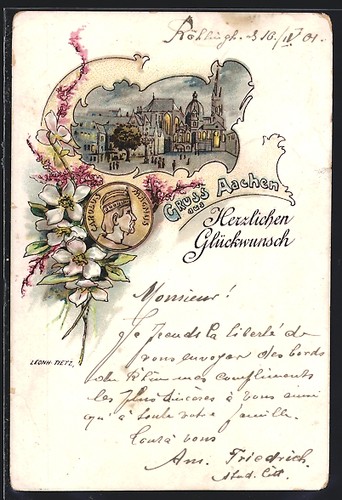 d. 16./IV 01.
CAROLUS MAGNUS
Gruss aus Aachen
Herzlichen
Glückwunsch
LEONH. TIETZ.
Monsieur!
Je prends la liberté de
vous envoyer des bords
du Rhin mes compliments
les plus sincères à vous ainsi
qu'à toute votre famille.
Tout à vous
Am. Friedrich
stud.